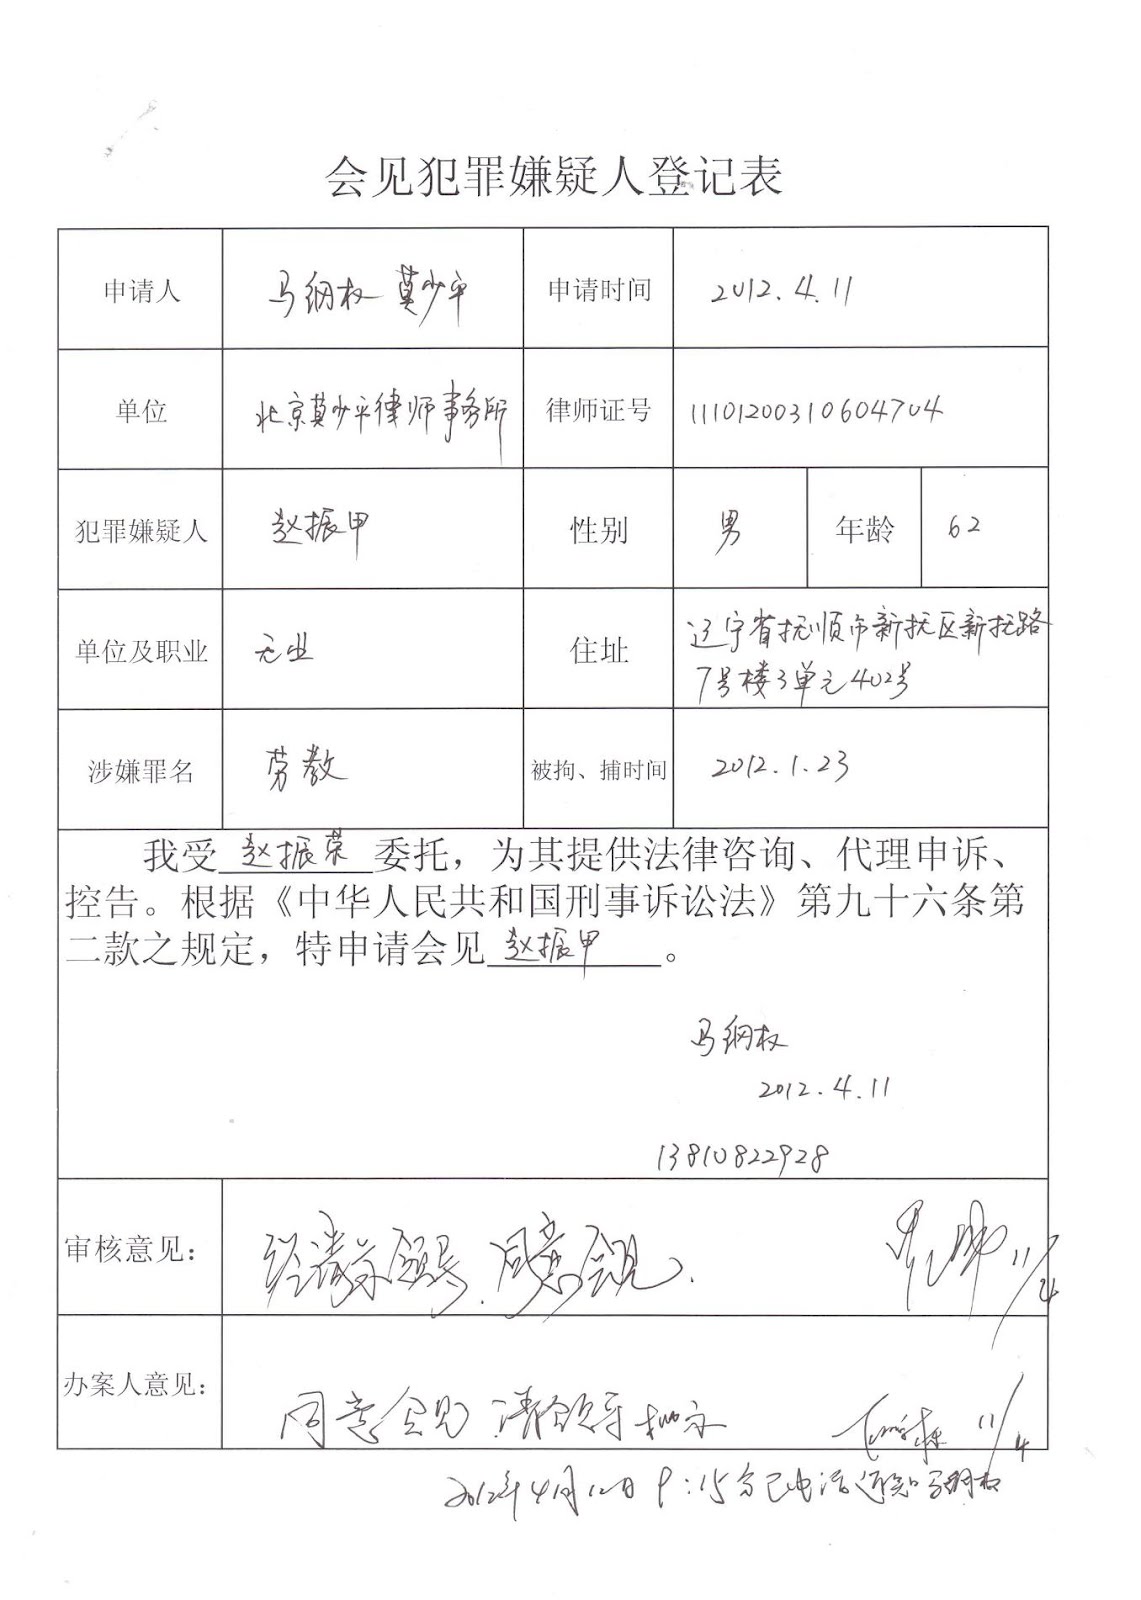 会见犯罪嫌疑人登记表
申请人 马纲权 莫少平 申请时间 2012.4.11
单位 北京莫少平律师事务所 律师证号 11101200310604704
犯罪嫌疑人 赵振甲 性别 男 年龄 62
单位及职业 无业 住址 辽宁省抚顺市新抚区新抚路
7号楼3单元402号
涉嫌罪名 劳教 被拘、捕时间 2012.1.23
我受 赵振荣 委托，为其提供法律咨询、代理申诉、
控告。根据《中华人民共和国刑事诉讼法》第九十六条第
二款之规定，特申请会见 赵振甲 。
马纲权
2012.4.11
13810822928
审核意见： 经请示领导.同意会见. 11/4
办案人意见： 同意会见 请领导批示 11/4
2012年4月12日 9:15分已电话通知马纲权